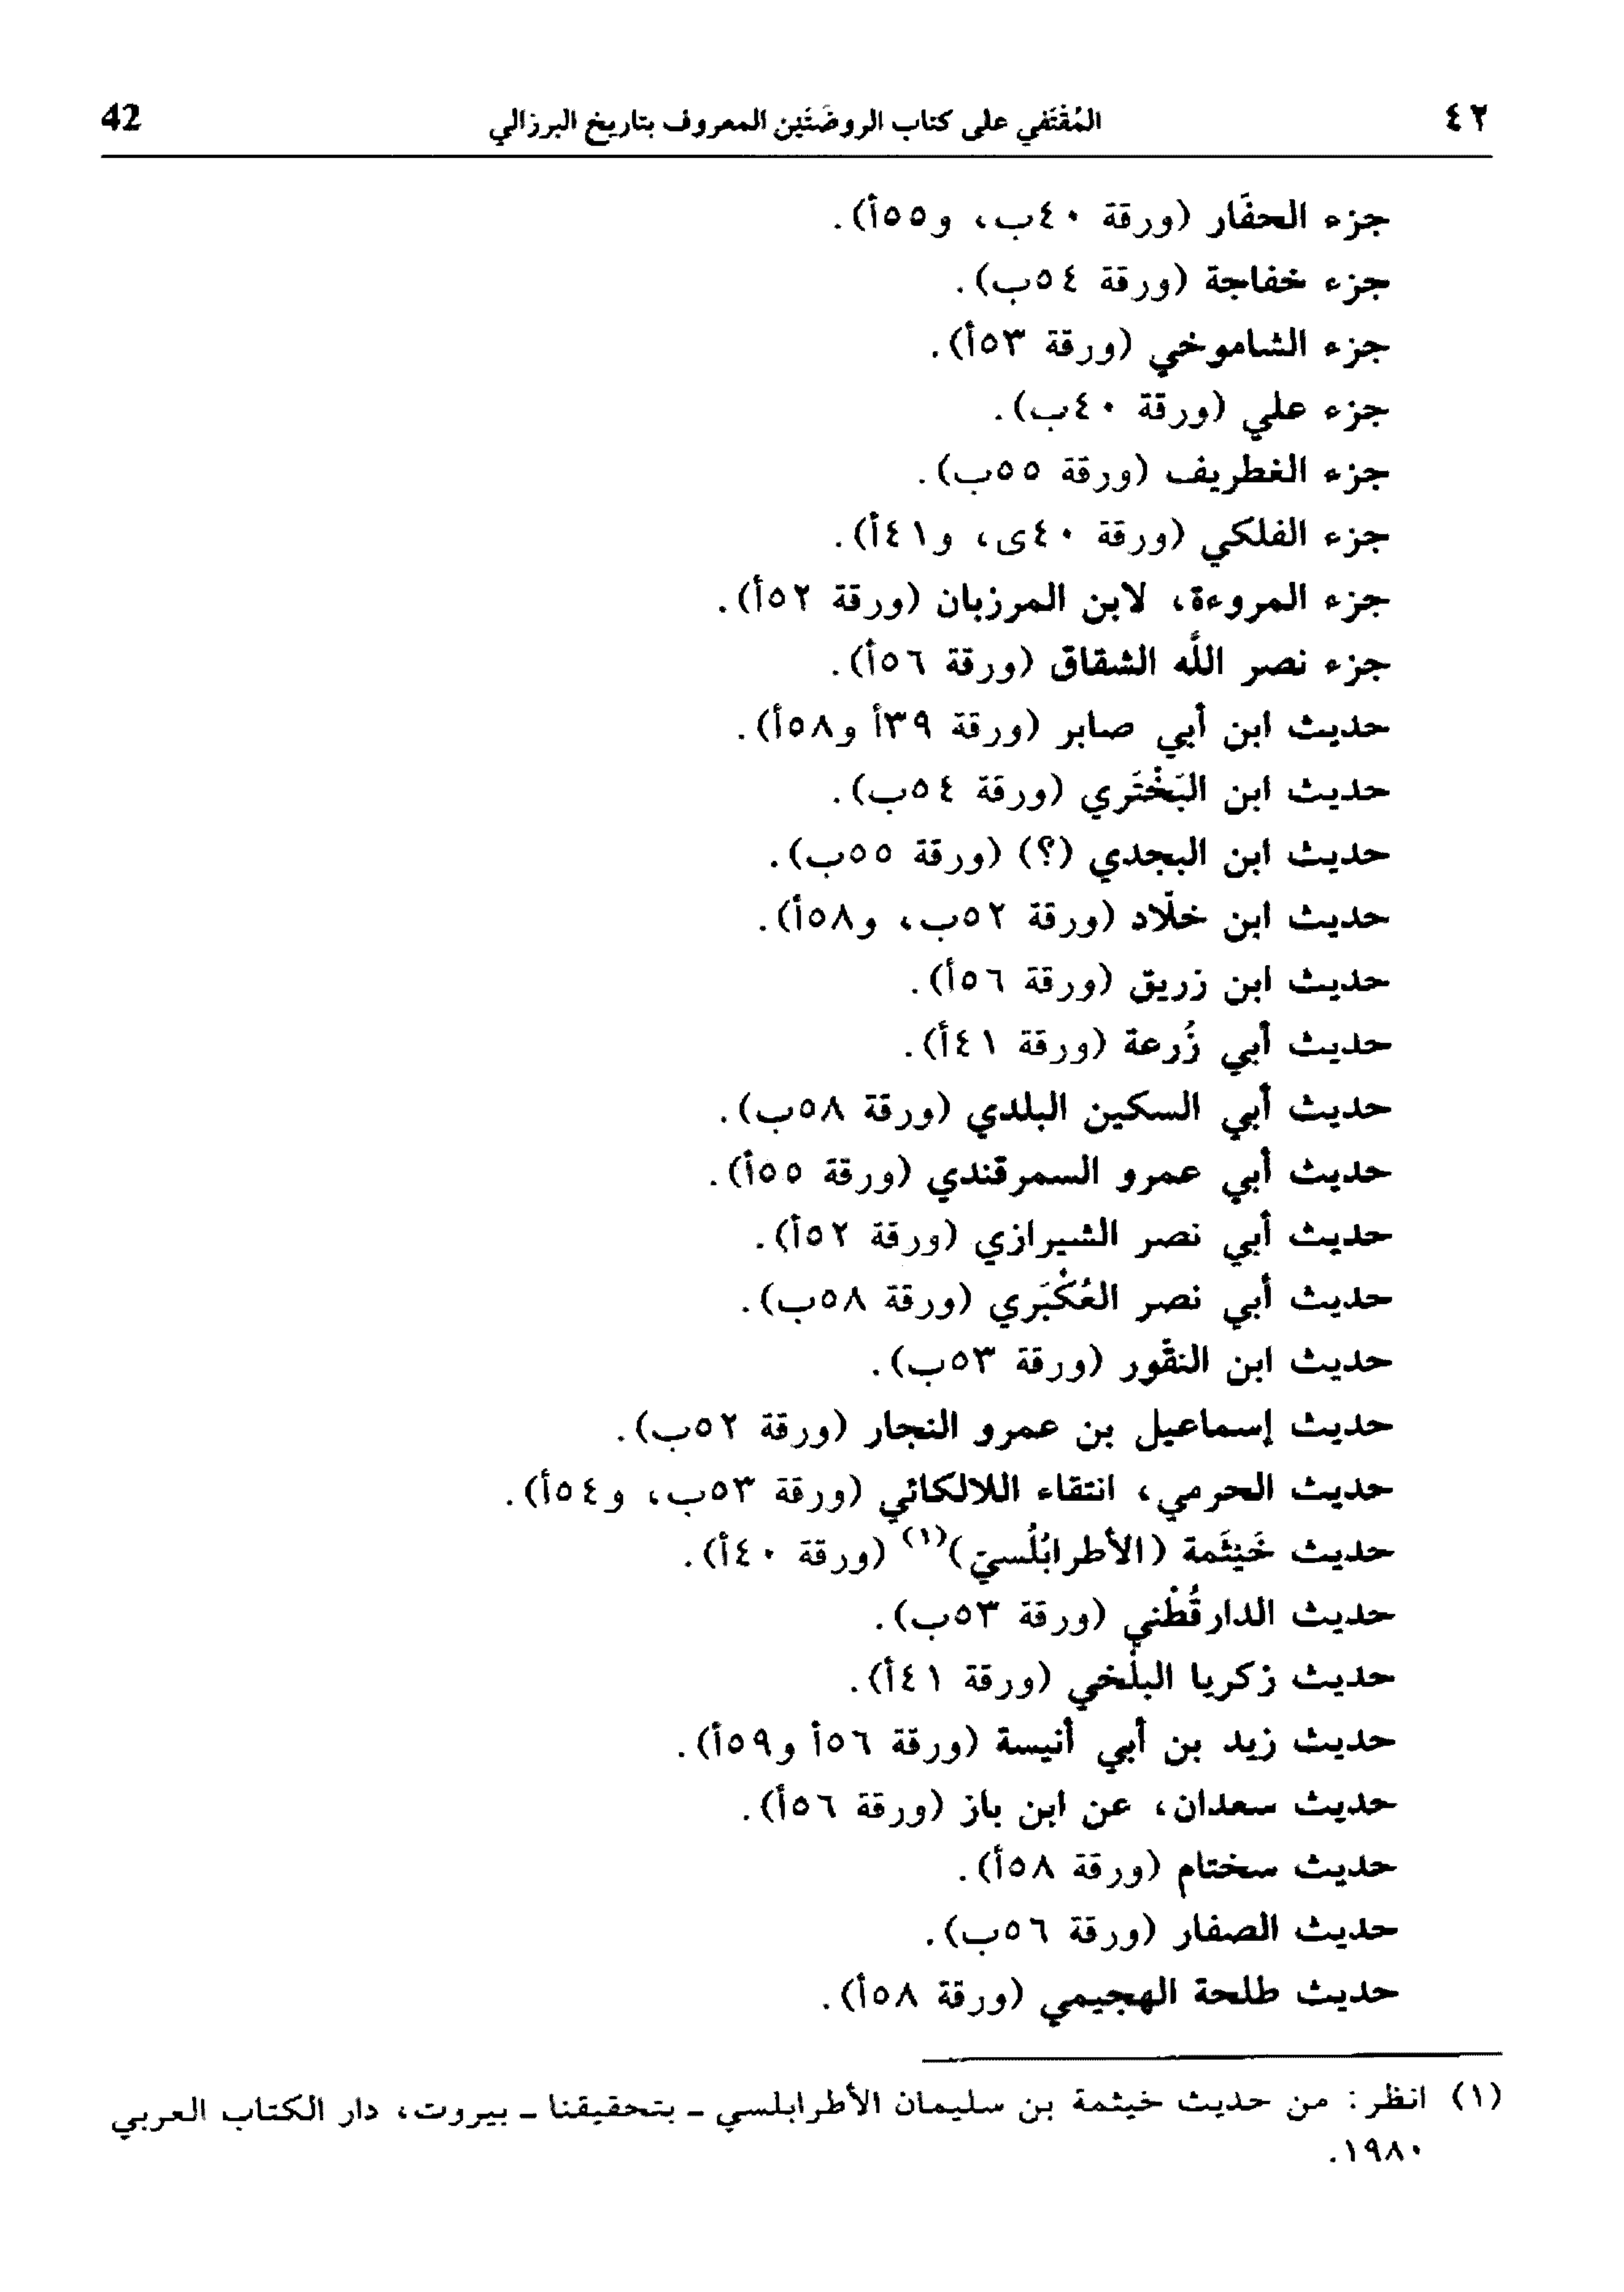 ٤٢ المُقْتَفي على كتاب الروضَتَين المعروف بتاريخ البرزالي 42
جزء الحفّار (ورقة ٤٠ب، و٥٥أ).
جزء خفاجة (ورقة ٥٤ب).
جزء الشاموخي (ورقة ٥٣أ).
جزء علي (ورقة ٤٠ب).
جزء الغطريف (ورقة ٥٥ب).
جزء الفلكي (ورقة ٤٠ى، و٤١أ).
جزء المروءة، لابن المرزبان (ورقة ٥٢أ).
جزء نصر الله الشقاق (ورقة ٥٦أ).
حديث ابن أبي صابر (ورقة ٣٩أ و٥٨أ).
حديث ابن البَخْتَري (ورقة ٥٤ب).
حديث ابن البجدي (؟) (ورقة ٥٥ب).
حديث ابن خلّاد (ورقة ٥٢ب، و٥٨أ).
حديث ابن زريق (ورقة ٥٦أ).
حديث أبي زُرعة (ورقة ٤١أ).
حديث أبي السكين البلدي (ورقة ٥٨ب).
حديث أبي عمرو السمرقندي (ورقة ٥٥أ).
حديث أبي نصر الشيرازي (ورقة ٥٢أ).
حديث أبي نصر العُكْبَري (ورقة ٥٨ب).
حديث ابن النقّور (ورقة ٥٣ب).
حديث إسماعيل بن عمرو النجار (ورقة ٥٢ب).
حديث الحرمي، انتقاء اللالكائي (ورقة ٥٣ب، و٥٤أ).
حديث خَيثَمة (الأطرابُلُسيّ)(١) (ورقة ٤٠أ).
حديث الدارقُطْني (ورقة ٥٣ب).
حديث زكريا البلْخي (ورقة ٤١أ).
حديث زيد بن أبي أنيسة (ورقة ٥٦أ و٥٩أ).
حديث سعدان، عن ابن باز (ورقة ٥٦أ).
حديث سختام (ورقة ٥٨أ).
حديث الصفار (ورقة ٥٦ب).
حديث طلحة الهجيمي (ورقة ٥٨أ).
(١) انظر: من حديث خيثمة بن سليمان الأطرابلسي ـ بتحقيقنا ـ بيروت، دار الكتاب العربي
١٩٨٠.